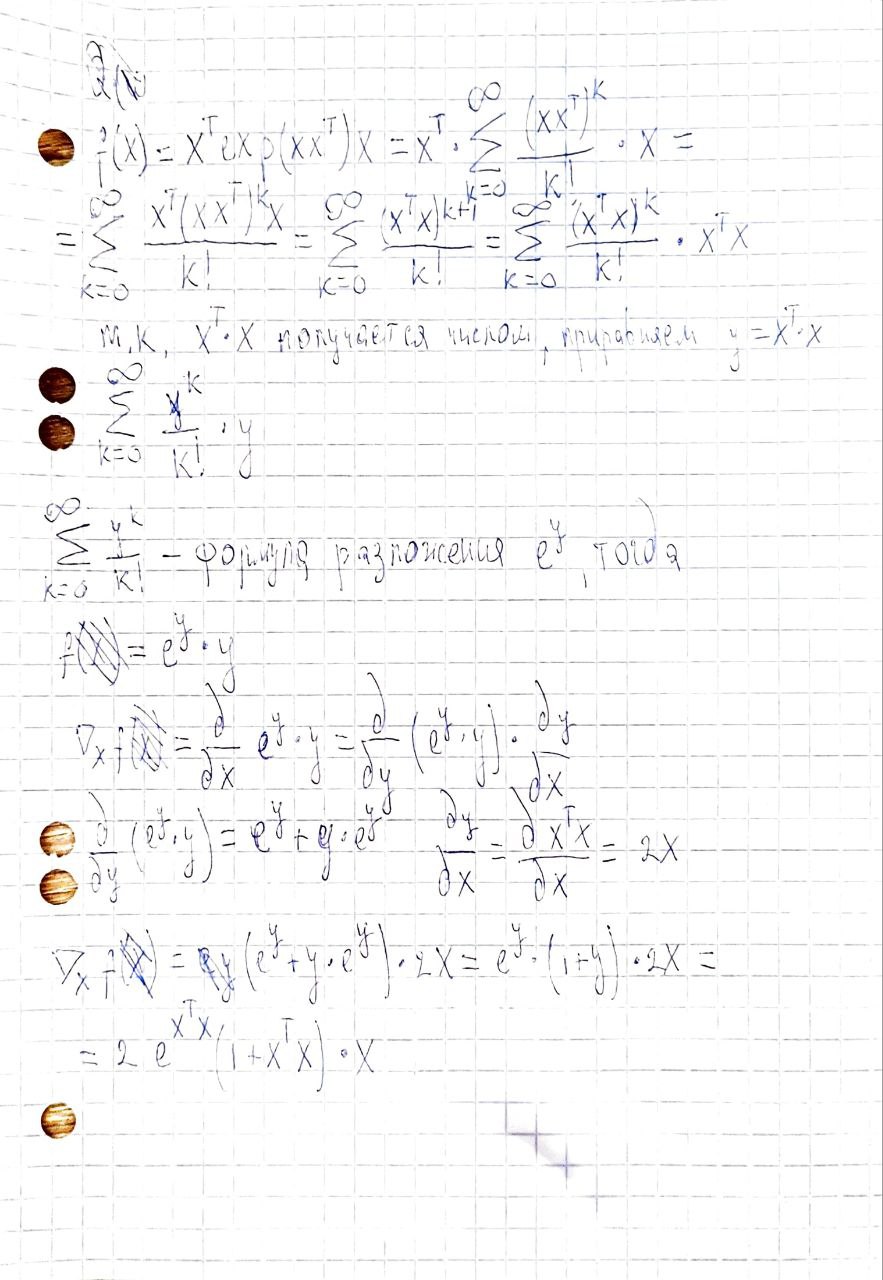 f(x) = xᵀexp(xxᵀ)x = xᵀ · ∑_{k=0}^{∞} (xxᵀ)ᵏ/k! · x =
= ∑_{k=0}^{∞} xᵀ(xxᵀ)ᵏx/k! = ∑_{k=0}^{∞} (xᵀx)ᵏ⁺¹/k! = ∑_{k=0}^{∞} (xᵀx)ᵏ/k! · xᵀx
т.к. xᵀ·x получается числом, приравняем y = xᵀ·x
∑_{k=0}^{∞} yᵏ/k! · y
∑_{k=0}^{∞} yᵏ/k! – формула разложения eʸ, тогда
f = eʸ · y
∇ₓ f = ∂/∂x eʸ · y = ∂/∂y (eʸ · y) · ∂y/∂x
∂/∂y (eʸ · y) = eʸ + y · eʸ ∂y/∂x = ∂xᵀx/∂x = 2x
∇ₓ f = (eʸ + y · eʸ) · 2x = eʸ · (1+y) · 2x =
= 2 e^{xᵀx} (1 + xᵀx) · x